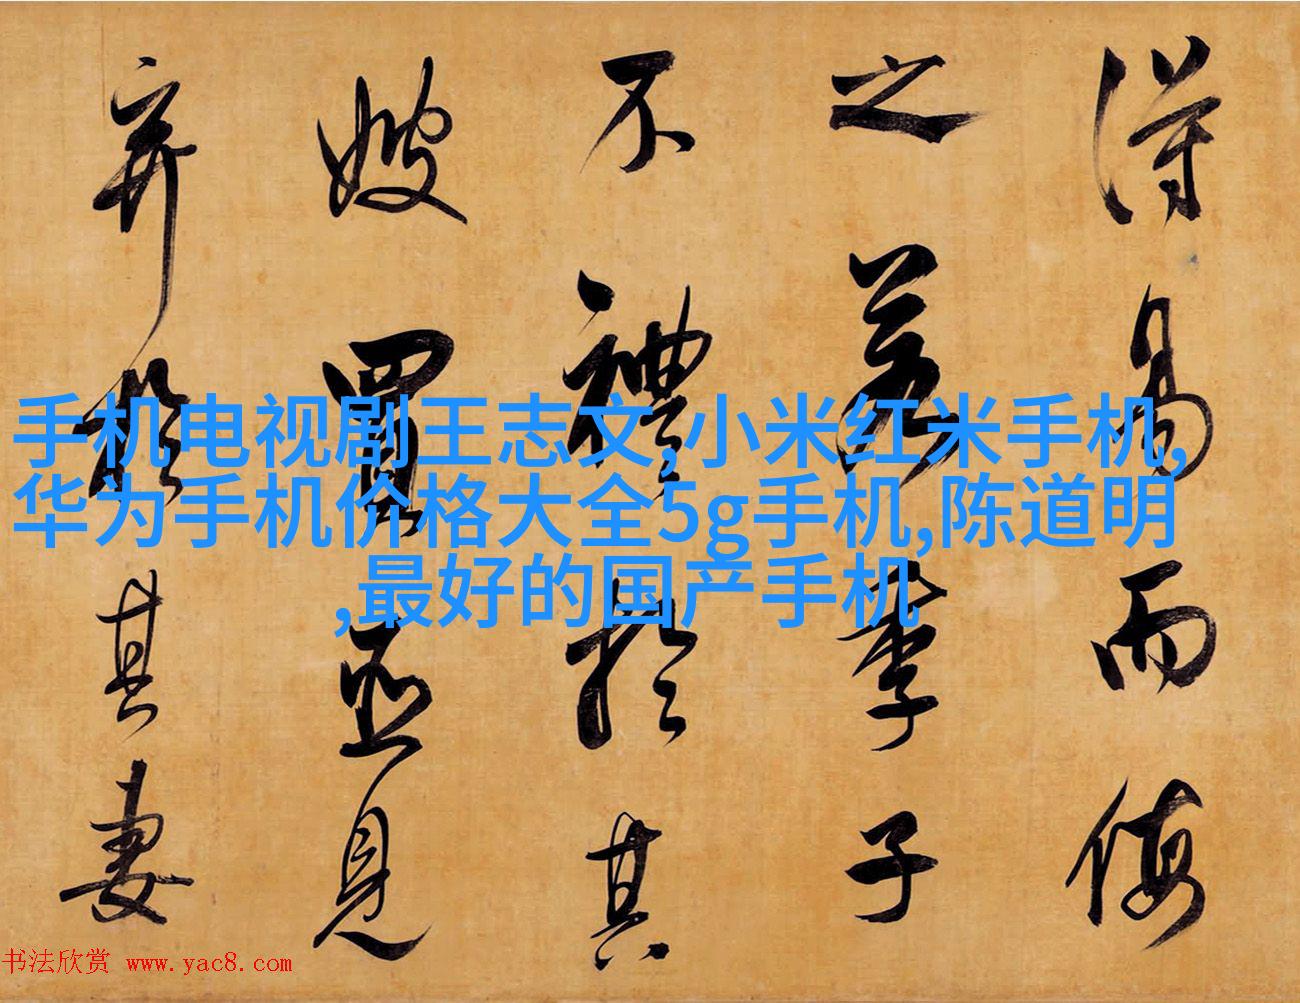 得易而侮
之若季子
不禮於其
嫂買臣見
弃於其妻
手机电视剧王志文,小米红米手机,
华为手机价格大全5g手机,陈道明
,最好的国产手机
书法欣赏 www.yac8.com